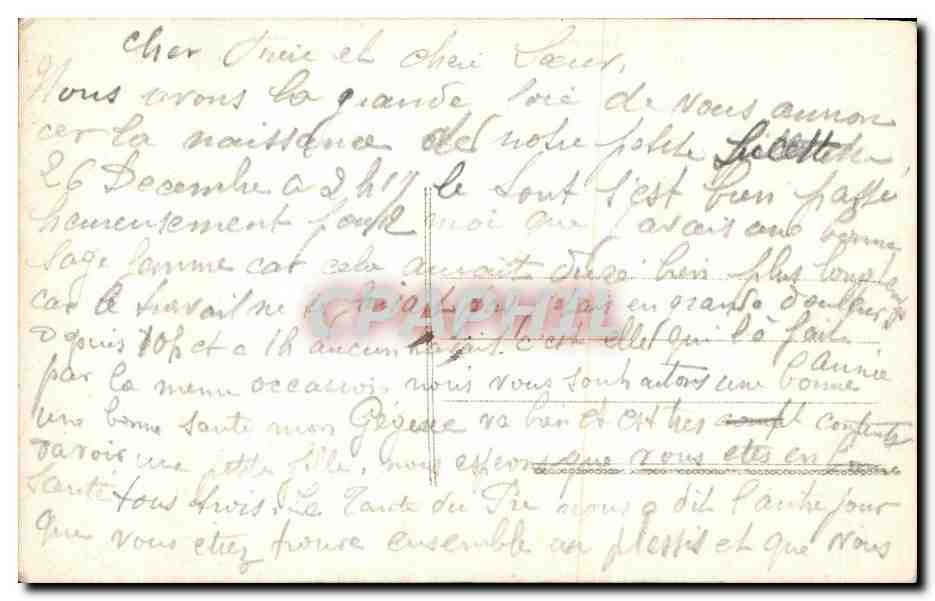 Cher Frere et chere Soeur,
Nous avons la grande Joie de vous annon
cer la naissance de notre petite Lucette le
26 Decembre a 2h17 le tout s'est bien passé
heureusement pour moi que j avais une bonne
Sage femme car cela aurait duré bien plus longtemps
car le travail ne se faisait pas en grande douleur
depuis 10h et a 1h aucun c'est elle qui la fait
par la meme occasion nous vous souhaitons une bonne année
une bonne Sante mon Gégène va bien et est tres content
davoir une petite fille, nous esperons que vous etes en bonne
Santé tous trois. La Tante du Pre nous a dit l'autre jour
que vous etiez trouve ensemble au plessis et que vous
CPAPHIL